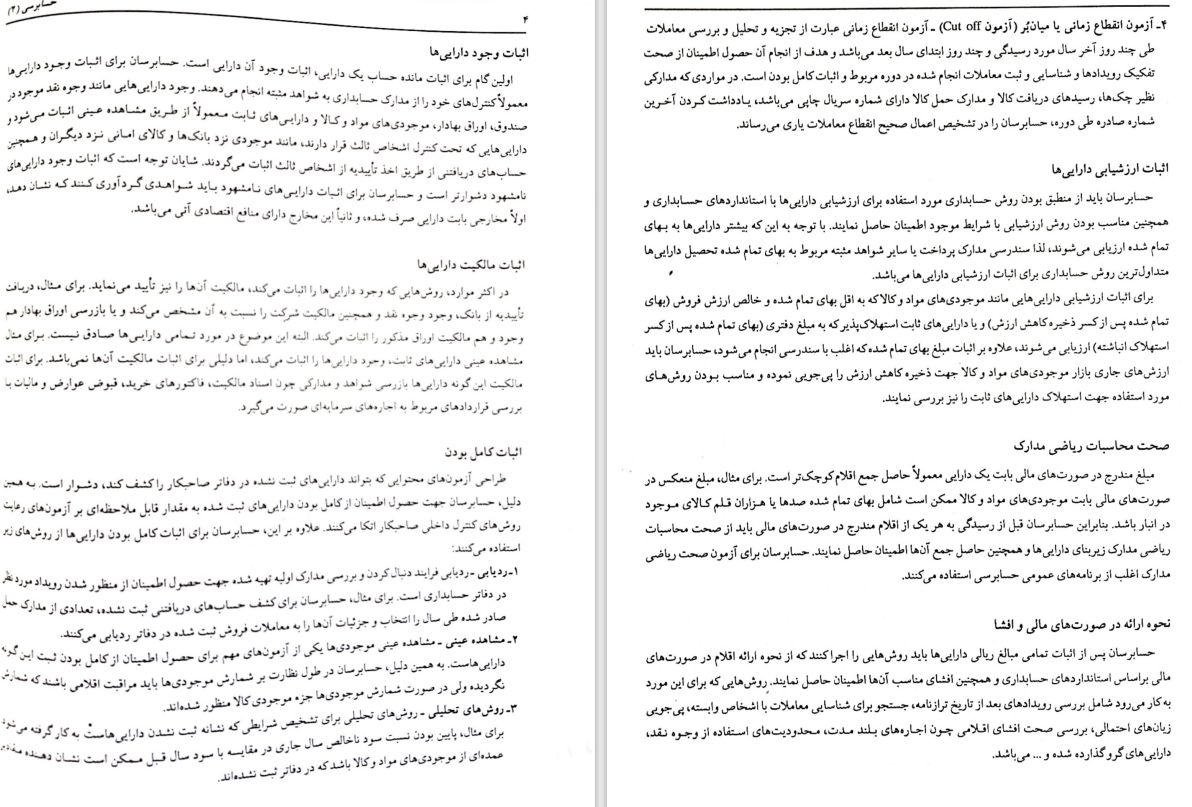 حسابرسی (۲)
۴
اثبات وجود دارایی‌ها
اولین گام برای اثبات مانده حساب یک دارایی، اثبات وجود آن دارایی است. حسابرسان برای اثبات وجود دارایی‌ها
معمولاً کنترل‌های خود را از مدارک حسابداری به شواهد مثبته انجام می‌دهند. وجود دارایی‌هایی مانند وجوه نقد موجود در
صندوق، اوراق بهادار، موجودی‌های مواد و کالا و دارایی‌های ثابت معمولاً از طریق مشاهده عینی اثبات می‌شود و
دارایی‌هایی که تحت کنترل اشخاص ثالث قرار دارند، مانند موجودی نزد بانک‌ها و کالای امانی نزد دیگران و همچنین
حساب‌های دریافتنی از طریق اخذ تأییدیه از اشخاص ثالث اثبات می‌گردند. شایان توجه است که اثبات وجود دارایی‌های
نامشهود دشوارتر است و حسابرسان برای اثبات دارایی‌های نامشهود باید شواهدی گردآوری کنند که نشان دهد،
اولاً مخارجی بابت دارایی صرف شده، و ثانیاً این مخارج دارای منافع اقتصادی آتی می‌باشد.
اثبات مالکیت دارایی‌ها
در اکثر موارد، روش‌هایی که وجود دارایی‌ها را اثبات می‌کند، مالکیت آن‌ها را نیز تأیید می‌نماید. برای مثال، دریافت
تأییدیه از بانک، وجود وجوه نقد و همچنین مالکیت شرکت را نسبت به آن مشخص می‌کند و یا بازرسی اوراق بهادار هم
وجود و هم مالکیت اوراق مذکور را اثبات می‌کند. البته این موضوع در مورد تمامی دارایی‌ها صادق نیست. برای مثال
مشاهده عینی دارایی‌های ثابت، وجود دارایی‌ها را اثبات می‌کند، اما دلیلی برای اثبات مالکیت آن‌ها نمی‌باشد. برای اثبات
مالکیت این گونه دارایی‌ها بازرسی شواهد و مدارکی چون اسناد مالکیت، فاکتورهای خرید، قبوض عوارض و مالیات با
بررسی قراردادهای مربوط به اجاره‌های سرمایه‌ای صورت می‌گیرد.
اثبات کامل بودن
طراحی آزمون‌های محتوایی که بتواند دارایی‌های ثبت نشده در دفاتر صاحبکار را کشف کند، دشوار است. به همین
دلیل، حسابرسان جهت حصول اطمینان از کامل بودن دارایی‌های ثبت شده به مقدار قابل ملاحظه‌ای بر آزمون‌های رعایت
روش‌های کنترل داخلی صاحبکار اتکا می‌کنند. علاوه بر این، حسابرسان برای اثبات کامل بودن دارایی‌ها از روش‌های زیر
استفاده می‌کنند:
۱ـ ردیابی ـ ردیابی فرایند دنبال کردن و بررسی مدارک اولیه تهیه شده جهت حصول اطمینان از منظور شدن رویداد مورد نظر
در دفاتر حسابداری است. برای مثال، حسابرسان برای کشف حساب‌های دریافتنی ثبت نشده، تعدادی از مدارک حمل
صادر شده طی سال را انتخاب و جزئیات آن‌ها را به معاملات فروش ثبت شده در دفاتر ردیابی می‌کنند.
۲ـ مشاهده عینی ـ مشاهده عینی موجودی‌ها یکی از آزمون‌های مهم برای حصول اطمینان از کامل بودن ثبت این‌گونه
دارایی‌هاست. به همین دلیل، حسابرسان در طول نظارت بر شمارش موجودی‌ها باید مراقبت اقلامی باشند که شمارش
نگردیده ولی در صورت شمارش موجودی‌ها جزء موجودی کالا منظور شده‌اند.
۳ـ روش‌های تحلیلی ـ روش‌های تحلیلی برای تشخیص شرایطی که نشانه ثبت نشدن دارایی‌هاست به کار گرفته می‌شود.
برای مثال، پایین بودن نسبت سود ناخالص سال جاری در مقایسه با سود سال قبل ممکن است نشان دهنده مقادیر
عمده‌ای از موجودی‌های مواد و کالا باشد که در دفاتر ثبت نشده‌اند.
۴ـ آزمون انقطاع زمانی یا میان‌بُر (آزمون Cut off) ـ آزمون انقطاع زمانی عبارت از تجزیه و تحلیل و بررسی معاملات
طی چند روز آخر سال مورد رسیدگی و چند روز ابتدای سال بعد می‌باشد و هدف از انجام آن حصول اطمینان از صحت
تفکیک رویدادها و شناسایی و ثبت معاملات انجام شده در دوره مربوط و اثبات کامل بودن است. در مواردی که مدارکی
نظیر چک‌ها، رسیدهای دریافت کالا و مدارک حمل کالا دارای شماره سریال چاپی می‌باشد، یادداشت کردن آخرین
شماره صادره طی دوره، حسابرسان را در تشخیص اعمال صحیح انقطاع معاملات یاری می‌رساند.
اثبات ارزشیابی دارایی‌ها
حسابرسان باید از منطبق بودن روش حسابداری مورد استفاده برای ارزشیابی دارایی‌ها با استانداردهای حسابداری و
همچنین مناسب بودن روش ارزشیابی با شرایط موجود اطمینان حاصل نمایند. با توجه به این که بیشتر دارایی‌ها به بهای
تمام شده ارزیابی می‌شوند، لذا سندرسی مدارک پرداخت یا سایر شواهد مثبته مربوط به بهای تمام شده تحصیل دارایی‌ها
متداول‌ترین روش حسابداری برای اثبات ارزشیابی دارایی‌ها می‌باشد.
برای اثبات ارزشیابی دارایی‌هایی مانند موجودی‌های مواد و کالا که به اقل بهای تمام شده و خالص ارزش فروش (بهای
تمام شده پس از کسر ذخیره کاهش ارزش) و یا دارایی‌های ثابت استهلاک‌پذیر که به مبلغ دفتری (بهای تمام شده پس از کسر
استهلاک انباشته) ارزیابی می‌شوند، علاوه بر اثبات مبلغ بهای تمام شده که اغلب با سندرسی انجام می‌شود، حسابرسان باید
ارزش‌های جاری بازار موجودی‌های مواد و کالا جهت ذخیره کاهش ارزش را پی‌جویی نموده و مناسب بودن روش‌های
مورد استفاده جهت استهلاک دارایی‌های ثابت را نیز بررسی نمایند.
صحت محاسبات ریاضی مدارک
مبلغ مندرج در صورت‌های مالی بابت یک دارایی معمولاً حاصل جمع اقلام کوچک‌تر است. برای مثال، مبلغ منعکس در
صورت‌های مالی بابت موجودی‌های مواد و کالا ممکن است شامل بهای تمام شده صدها یا هزاران قلم کالای موجود
در انبار باشد. بنابراین حسابرسان قبل از رسیدگی به هر یک از اقلام مندرج در صورت‌های مالی باید از صحت محاسبات
ریاضی مدارک زیربنای دارایی‌ها و همچنین حاصل جمع آن‌ها اطمینان حاصل نمایند. حسابرسان برای آزمون صحت ریاضی
مدارک اغلب از برنامه‌های عمومی حسابرسی استفاده می‌کنند.
نحوه ارائه در صورت‌های مالی و افشا
حسابرسان پس از اثبات تمامی مبالغ ریالی دارایی‌ها باید روش‌هایی را اجرا کنند که از نحوه ارائه اقلام در صورت‌های
مالی براساس استانداردهای حسابداری و همچنین افشای مناسب آن‌ها اطمینان حاصل نمایند. روش‌هایی که برای این مورد
به کار می‌رود شامل بررسی رویدادهای بعد از تاریخ ترازنامه، جستجو برای شناسایی معاملات با اشخاص وابسته، پی‌جویی
زیان‌های احتمالی، بررسی صحت افشای اقلامی چون اجاره‌های بلند مدت، محدودیت‌های استفاده از وجوه نقد،
دارایی‌های گرو گذارده شده و ... می‌باشد.